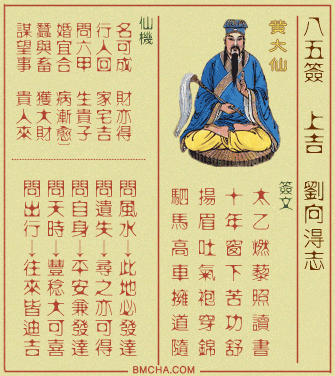 八五簽 上吉 劉向得志
黃大仙
簽文
太乙燃藜照讀書
十年窗下苦功舒
揚眉吐氣袍穿錦
駟馬高車擁道隨
仙機
名可成 財亦得
行人回 家宅吉
問六甲 生貴子
婚宜合 病漸愈
蠶與畜 獲大財
謀望事 貴人來
問風水→此地必發達
問遺失→尋之亦可得
問自身→平安兼發達
問天時→豐稔大可喜
問出行→往來皆迪吉
BMCHA.COM